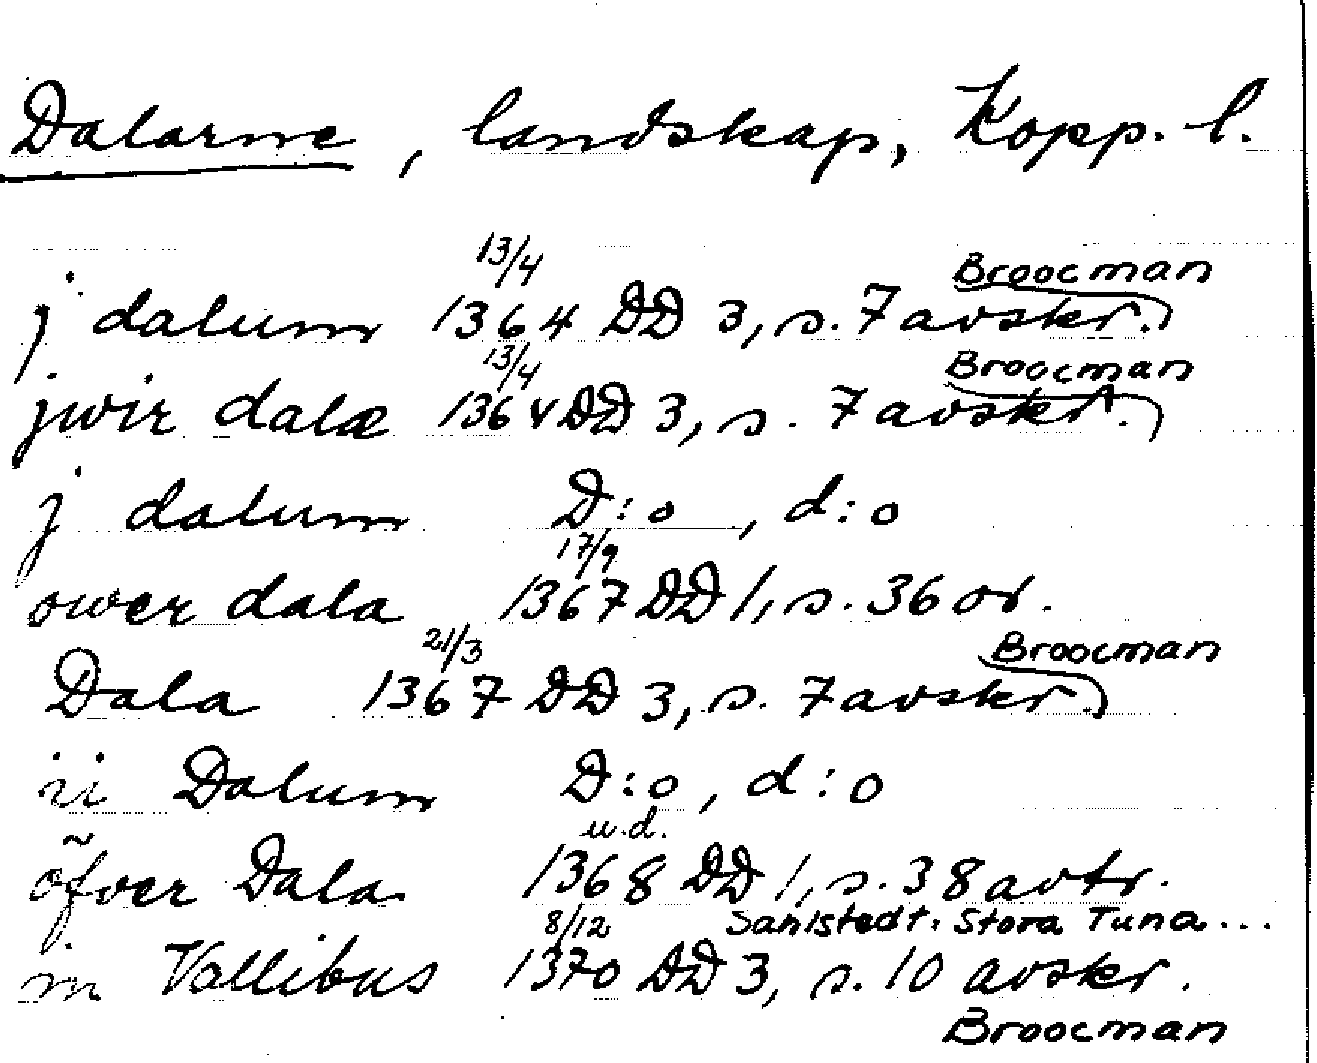 Dalarne, landskap, Kopp. l.
13/4 Broocman
j dalum 1364 DD 3, s. 7 avskr.
13/4 Broocman
jwir dalæ 1364 DD 3, s. 7 avskr.
j dalum D:o, d:o
17/9
ower dala 1367 DD 1, s. 36 or.
21/3 Broocman
Dala 1367 DD 3, s. 7 avskr.
ii Dalum D:o, d:o
u.d.
öfver Dala 1368 DD 1, s. 38 avtr.
8/12 Sahlstedt. Stora Tuna...
in Vallibus 1370 DD 3, s. 10 avskr.
Broocman